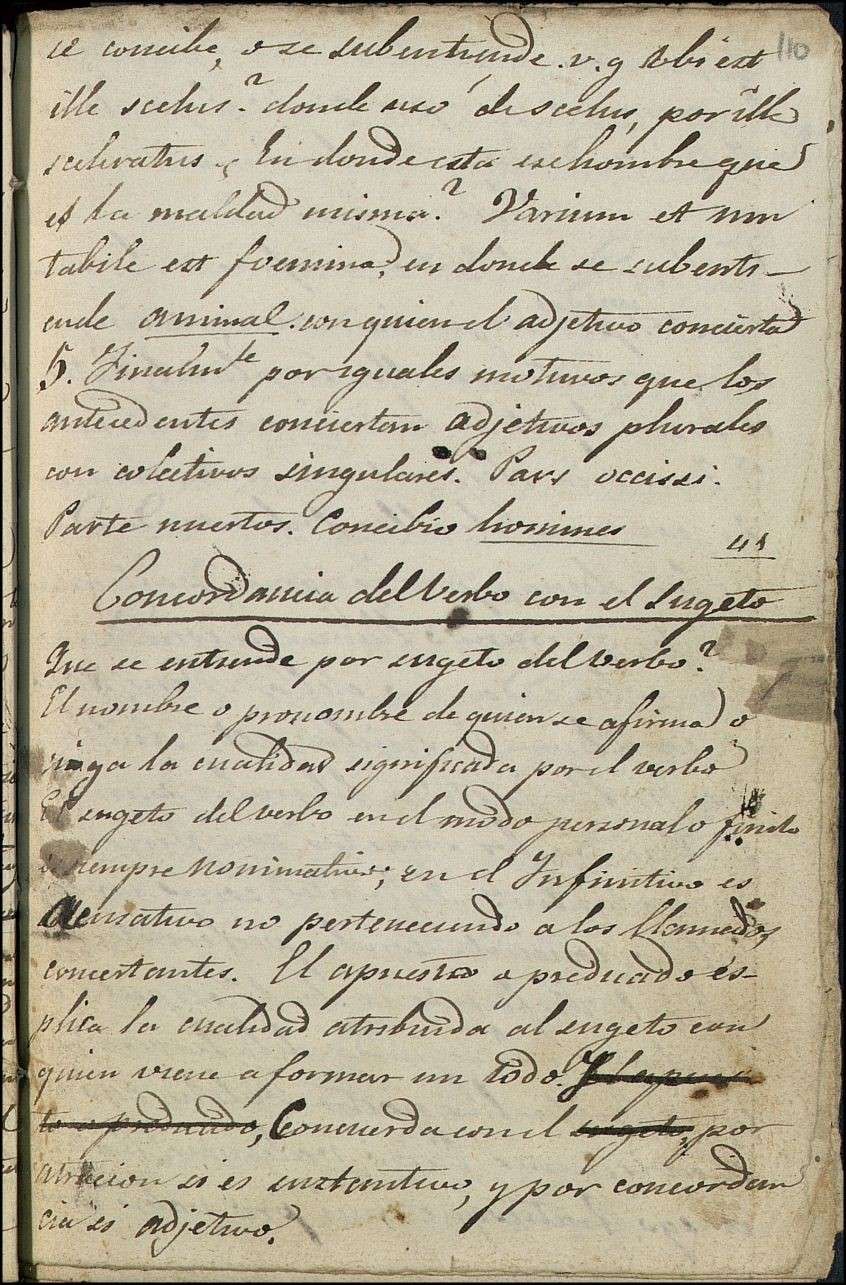 110
se concibe, o se subentiende. v. g ubi est
ille scelus? donde uso de scelus, por ille
sceleratus. En donde esta ese hombre que
es la maldad misma? Varium et mu
tabile est foemina, en donde se subenti-
ende animal. con quien el adjetivo concierta
5. Finalmte por iguales motivos que los
antecedentes conciertan adjetivos plurales
con colectivos singulares. Pars occissi.
Parte muertos. Concibio homines
Concordancia del Verbo con el Sugeto
Que se entiende por sugeto del verbo?
El nombre o pronombre de quien se afirma o
niega la cualidad significada por el verbo
El sugeto del verbo en el modo personal o finito
es siempre Nominativo; en el Infinitivo es
Acusativo no perteneciendo a los llamados
concertantes. El apuesto o predicado es-
plica la cualidad atribuida al sugeto con
quien viene a formar un todo. El apues
to o predicado, Concuerda con el sugeto, por
atracion si es sustantivo, y por concordan
cia si adjetivo.